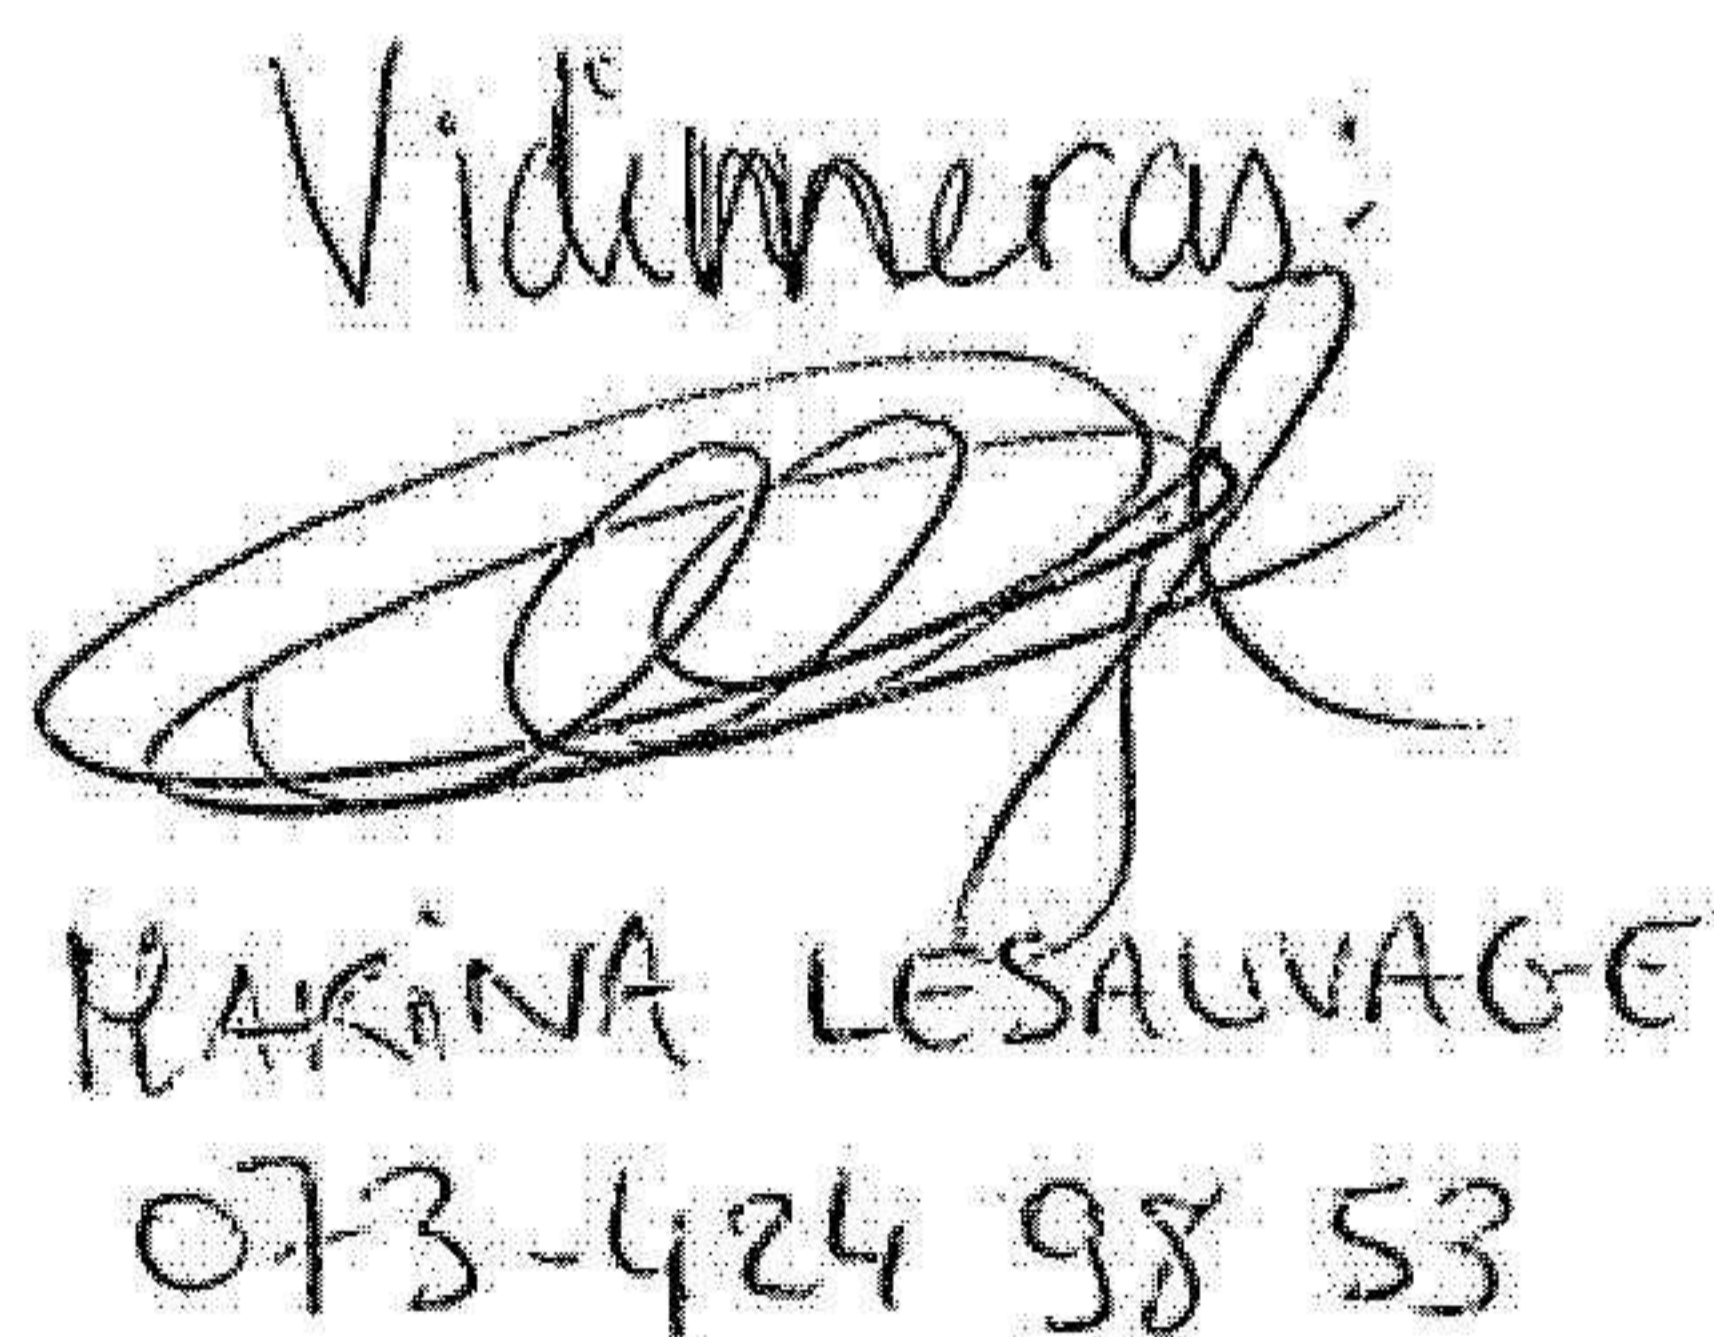 Vidimeras:
MARINA LESAUVAGE
073-424 98 53